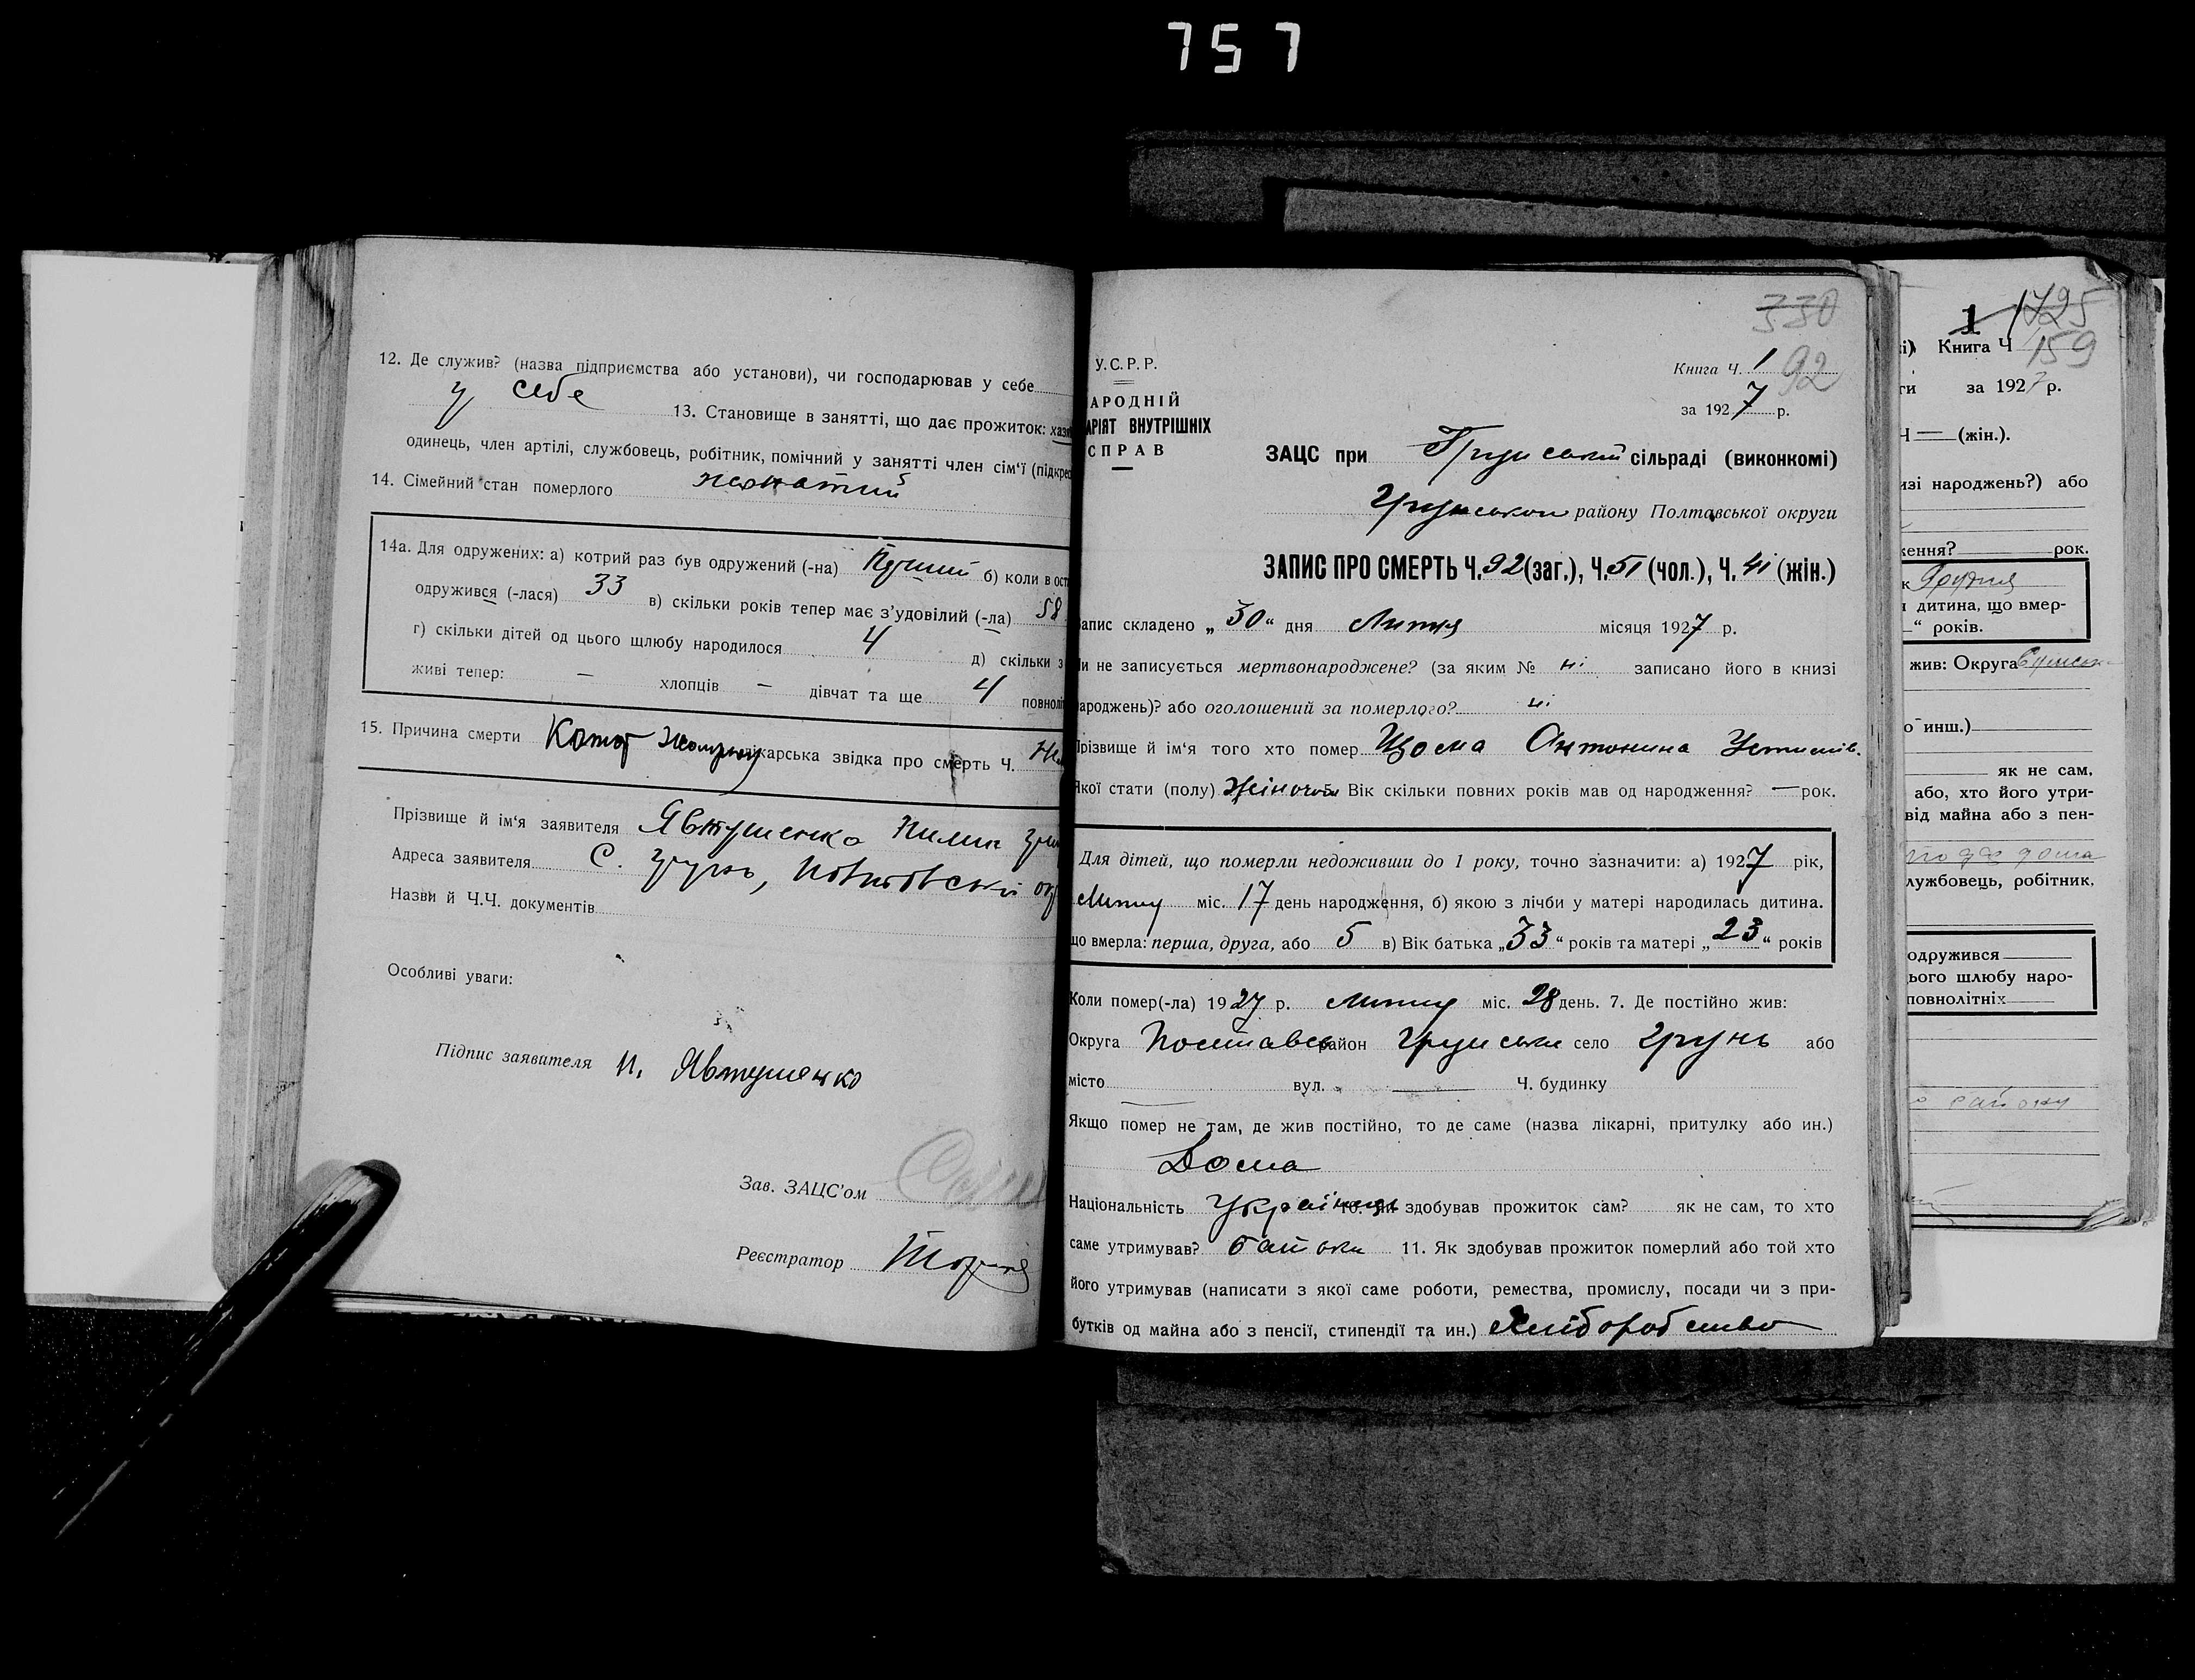 757
12. Де служив? (назва підприємства або установи), чи господарював у себе
у себе 13. Становище в занятті, що дає прожиток: хазя
одинець, член артілі, службовець, робітник, помічний у занятті член сім'ї (підкрес
14. Сімейний стан померлого жонатий
14а. Для одружених: а) котрий раз був одружений (-на) б) коли в ост
одружився (-лася) 33 в) скільки років тепер має з'удовілий (-ла) 58
г) скільки дітей од цього шлюбу народилося 4 д) скільки з
живі тепер: — хлопців — дівчат та ще 4 повноліт
15. Причина смерти карська звідка про смерть Ч.
Прізвище й ім'я заявителя Явтушенко Пилип
Адреса заявителя С. Грунь,
Назви й Ч.Ч. документів
Особливі уваги:
Підпис заявителя П. Явтушенко
Зав. ЗАЦС'ом
Реєстратор
330
У.С.Р.Р.
Книга Ч. 1 92
АРОДНІЙ
за 1927 р.
АРІЯТ ВНУТРІШНІХ
СПРАВ
ЗАЦС при Грунській сільраді (виконкомі)
Грунського району Полтавської округи
ЗАПИС ПРО СМЕРТЬ Ч. 92 (заг.), Ч. 51 (чол.), Ч. 41 (жін.)
апис складено „30“ дня Липня місяця 1927 р.
и не записується мертвонароджене? (за яким № ні записано його в книзі
ароджень)? або оголошений за померлого? ні
різвище й ім'я того хто помер Щома Антонина Устимів.
кої стати (полу) жіночої 5. Вік скільки повних років мав од народження? — рок.
Для дітей, що померли недоживши до 1 року, точно зазначити: а) 1927 рік,
Липня міс. 17 день народження, б) якою з лічби у матері народилась дитина.
що вмерла: перша, друга, або 5 в) Вік батька „33“ років та матері „23“ років
Коли помер(-ла) 1927 р. Липня міс. 28 день. 7. Де постійно жив:
Округа Полтавсь район Грунськи село Грунь або
місто вул. — Ч. будинку
Якщо помер не там, де жив постійно, то де саме (назва лікарні, притулку або ин.)
Дома
Національність Українець 10. Чи здобував прожиток сам? як не сам, то хто
саме утримував? батьки 11. Як здобував прожиток померлий або той хто
його утримував (написати з якої саме роботи, ремества, промислу, посади чи з при-
бутків од майна або з пенсії, стипендії та ин.) Хліборобство
1 1725
і) Книга Ч 159
ти за 1927 р.
Ч — (жін.).
изі народжень?) або
ження? рок.
к Грудня
дитина, що вмер-
— “ років.
жив: Округа Сумськ
о инш.)
як не сам,
або, хто його утри-
від майна або з пен-
лужбовець, робітник,
одружився
ього шлюбу наро-
повнолітніх
району